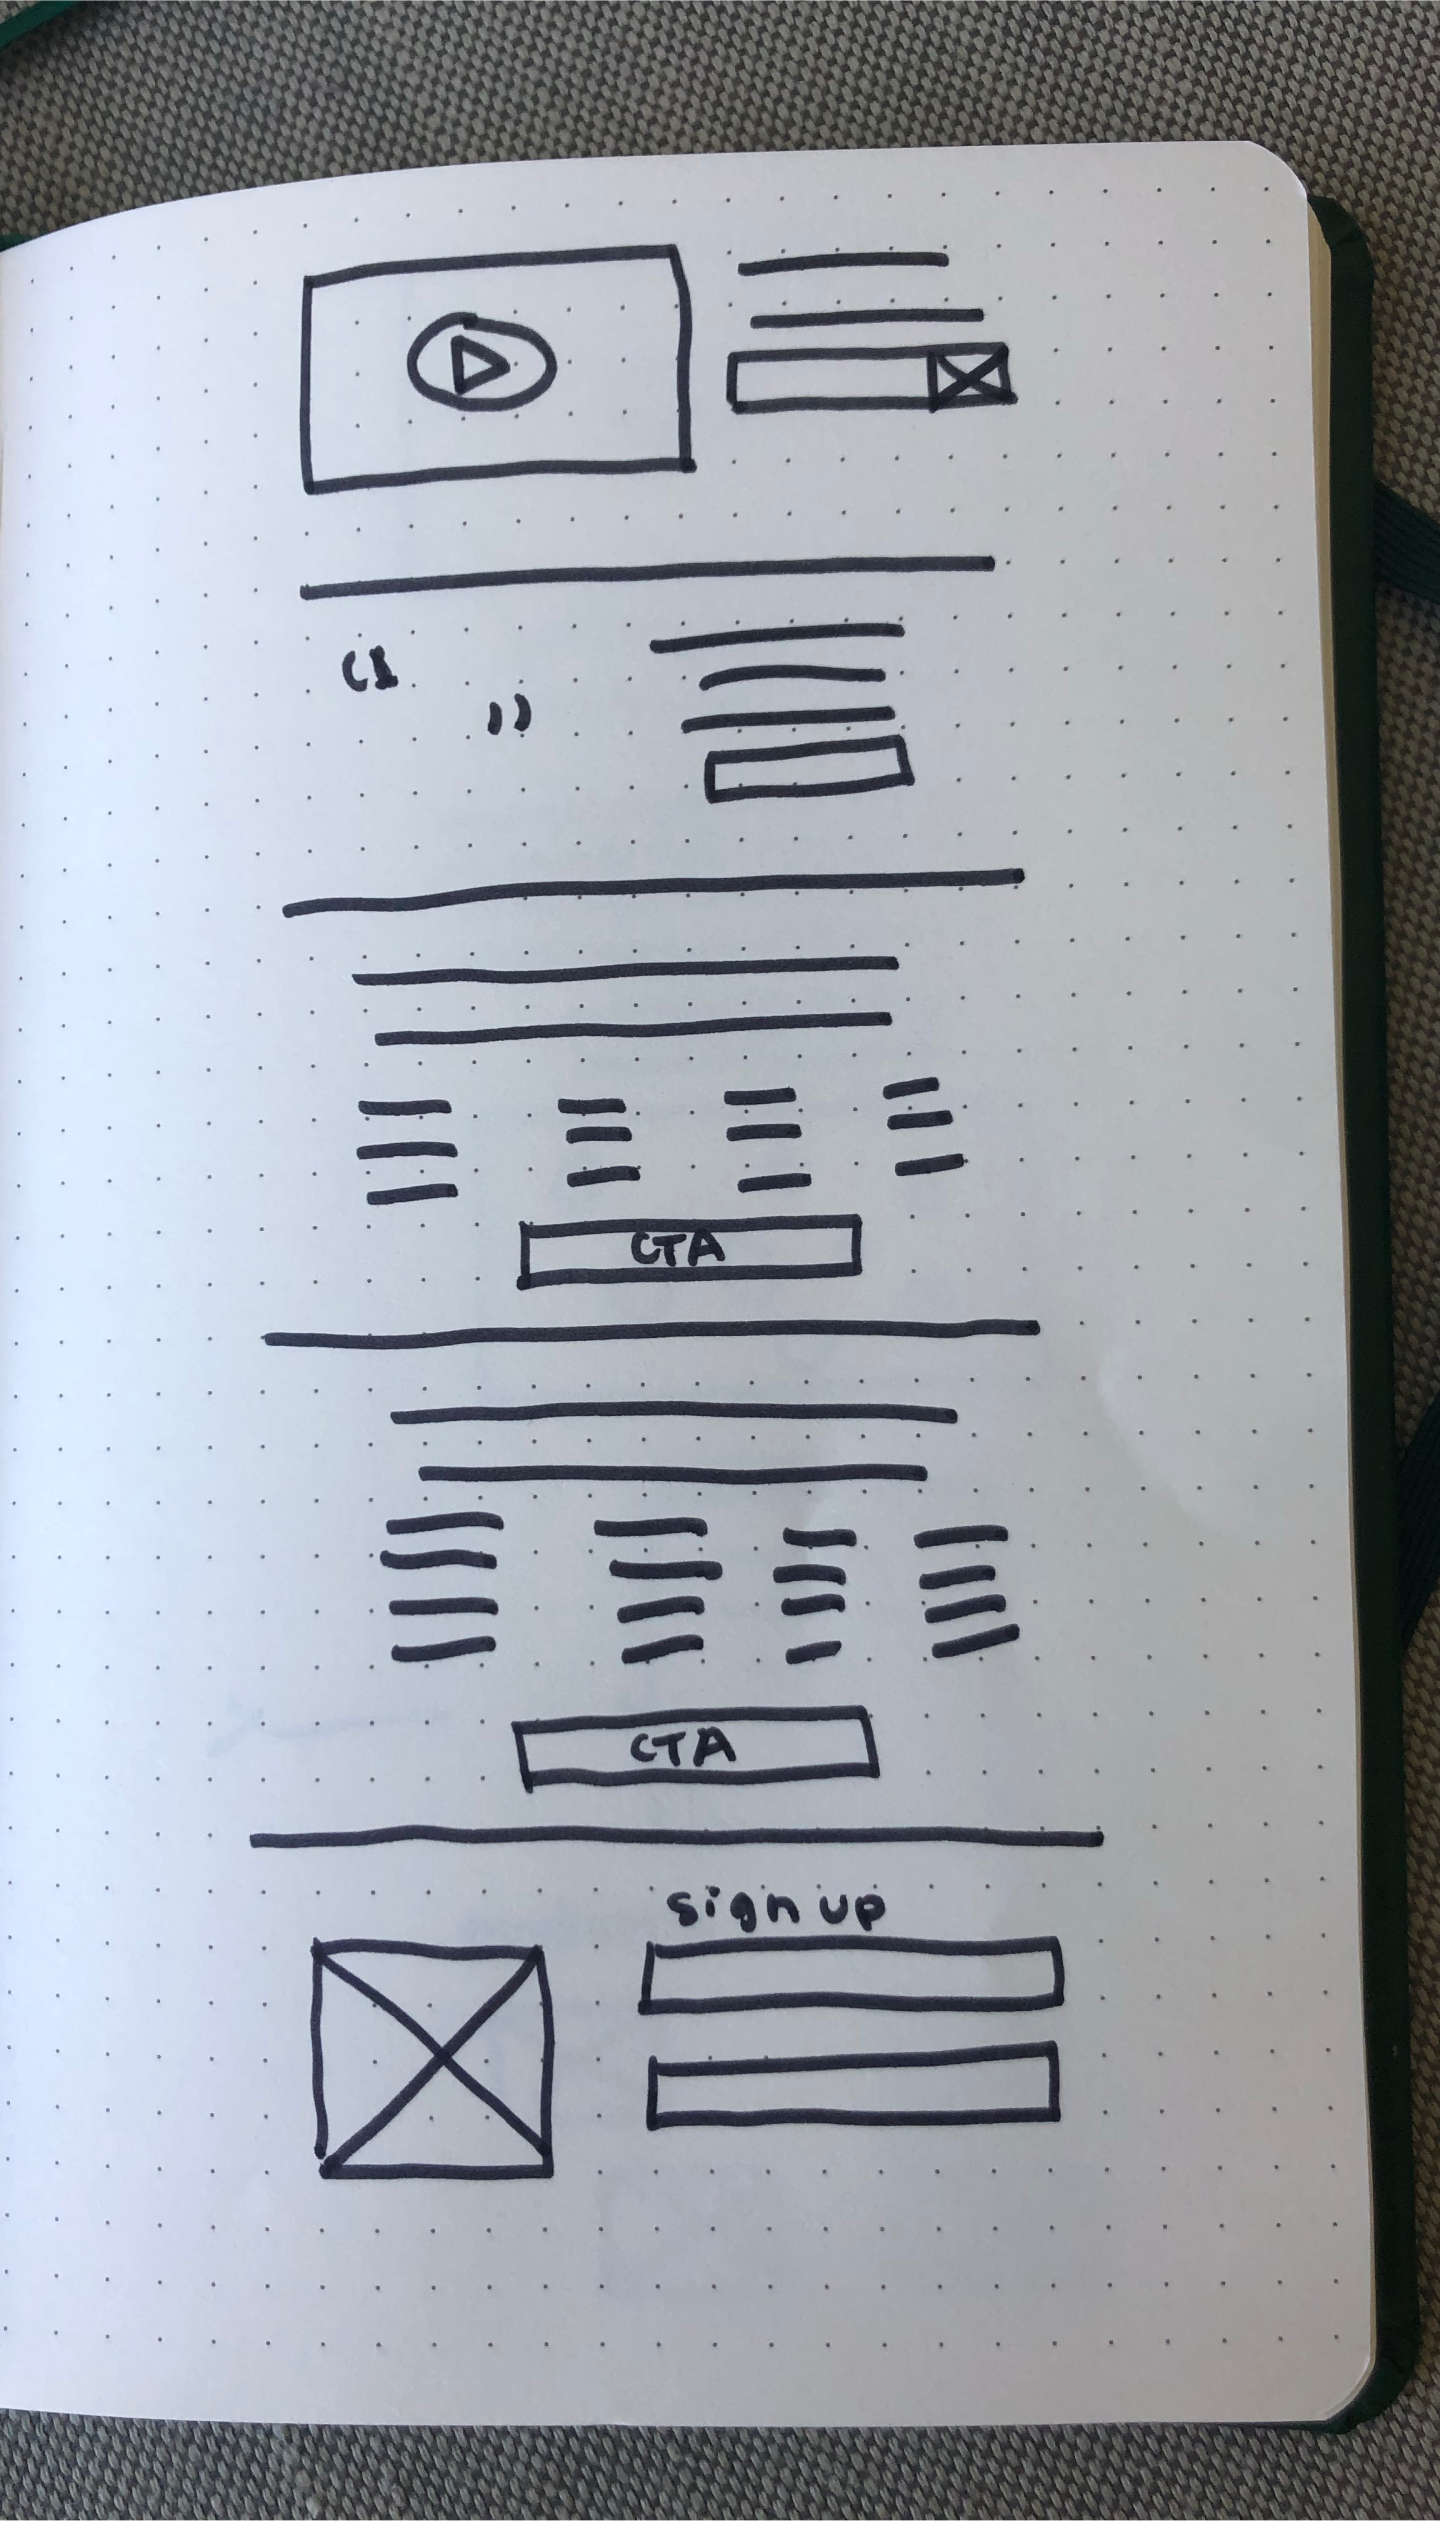 “
”
CTA
CTA
sign up